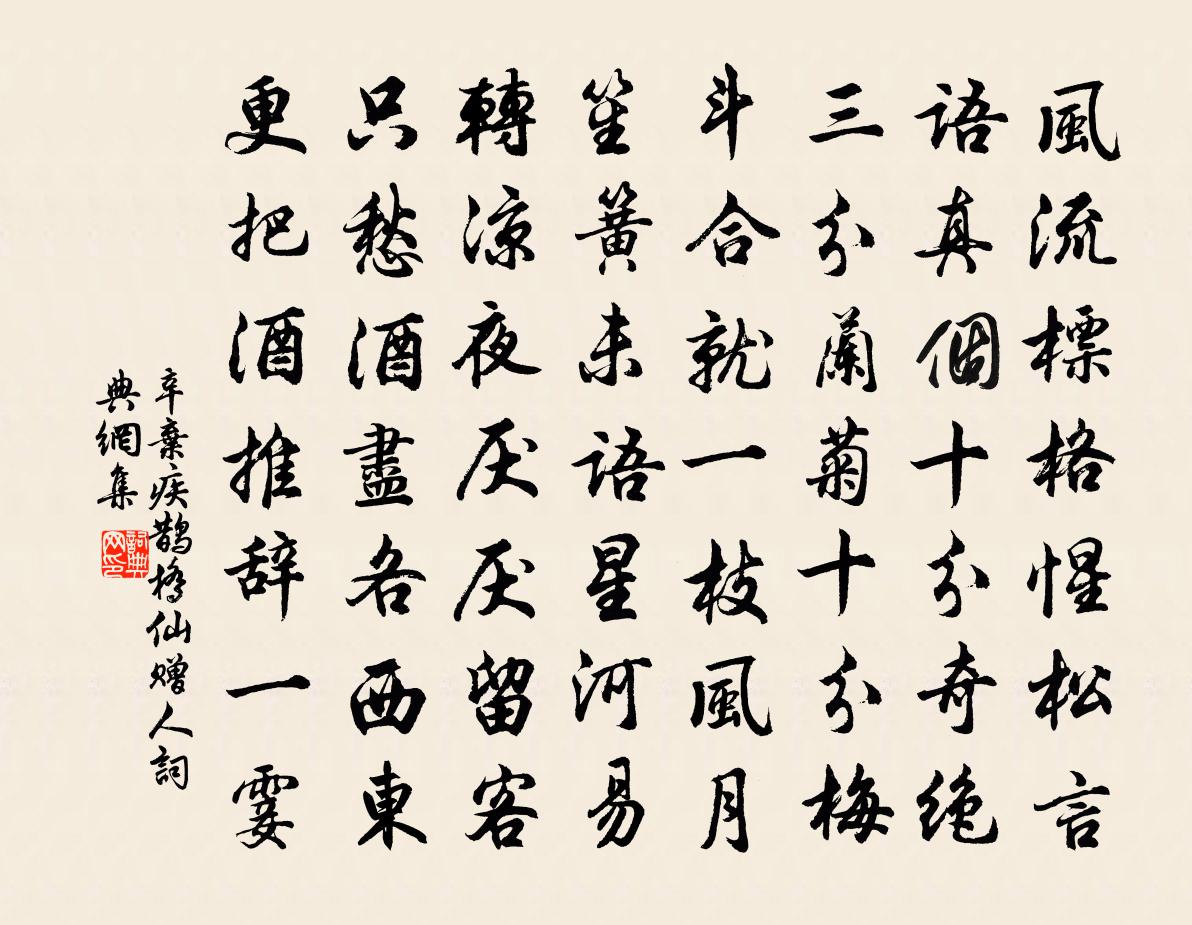 風流標格惺松言
語真個十分奇绝
三分蘭菊十分梅
斗合就一枝風月
笙簧未语星河易
轉凉夜厌厌留客
只愁酒盡各西東
更把酒推辞一霎
辛棄疾鹊橋仙赠人詞
典網集
詞典网印